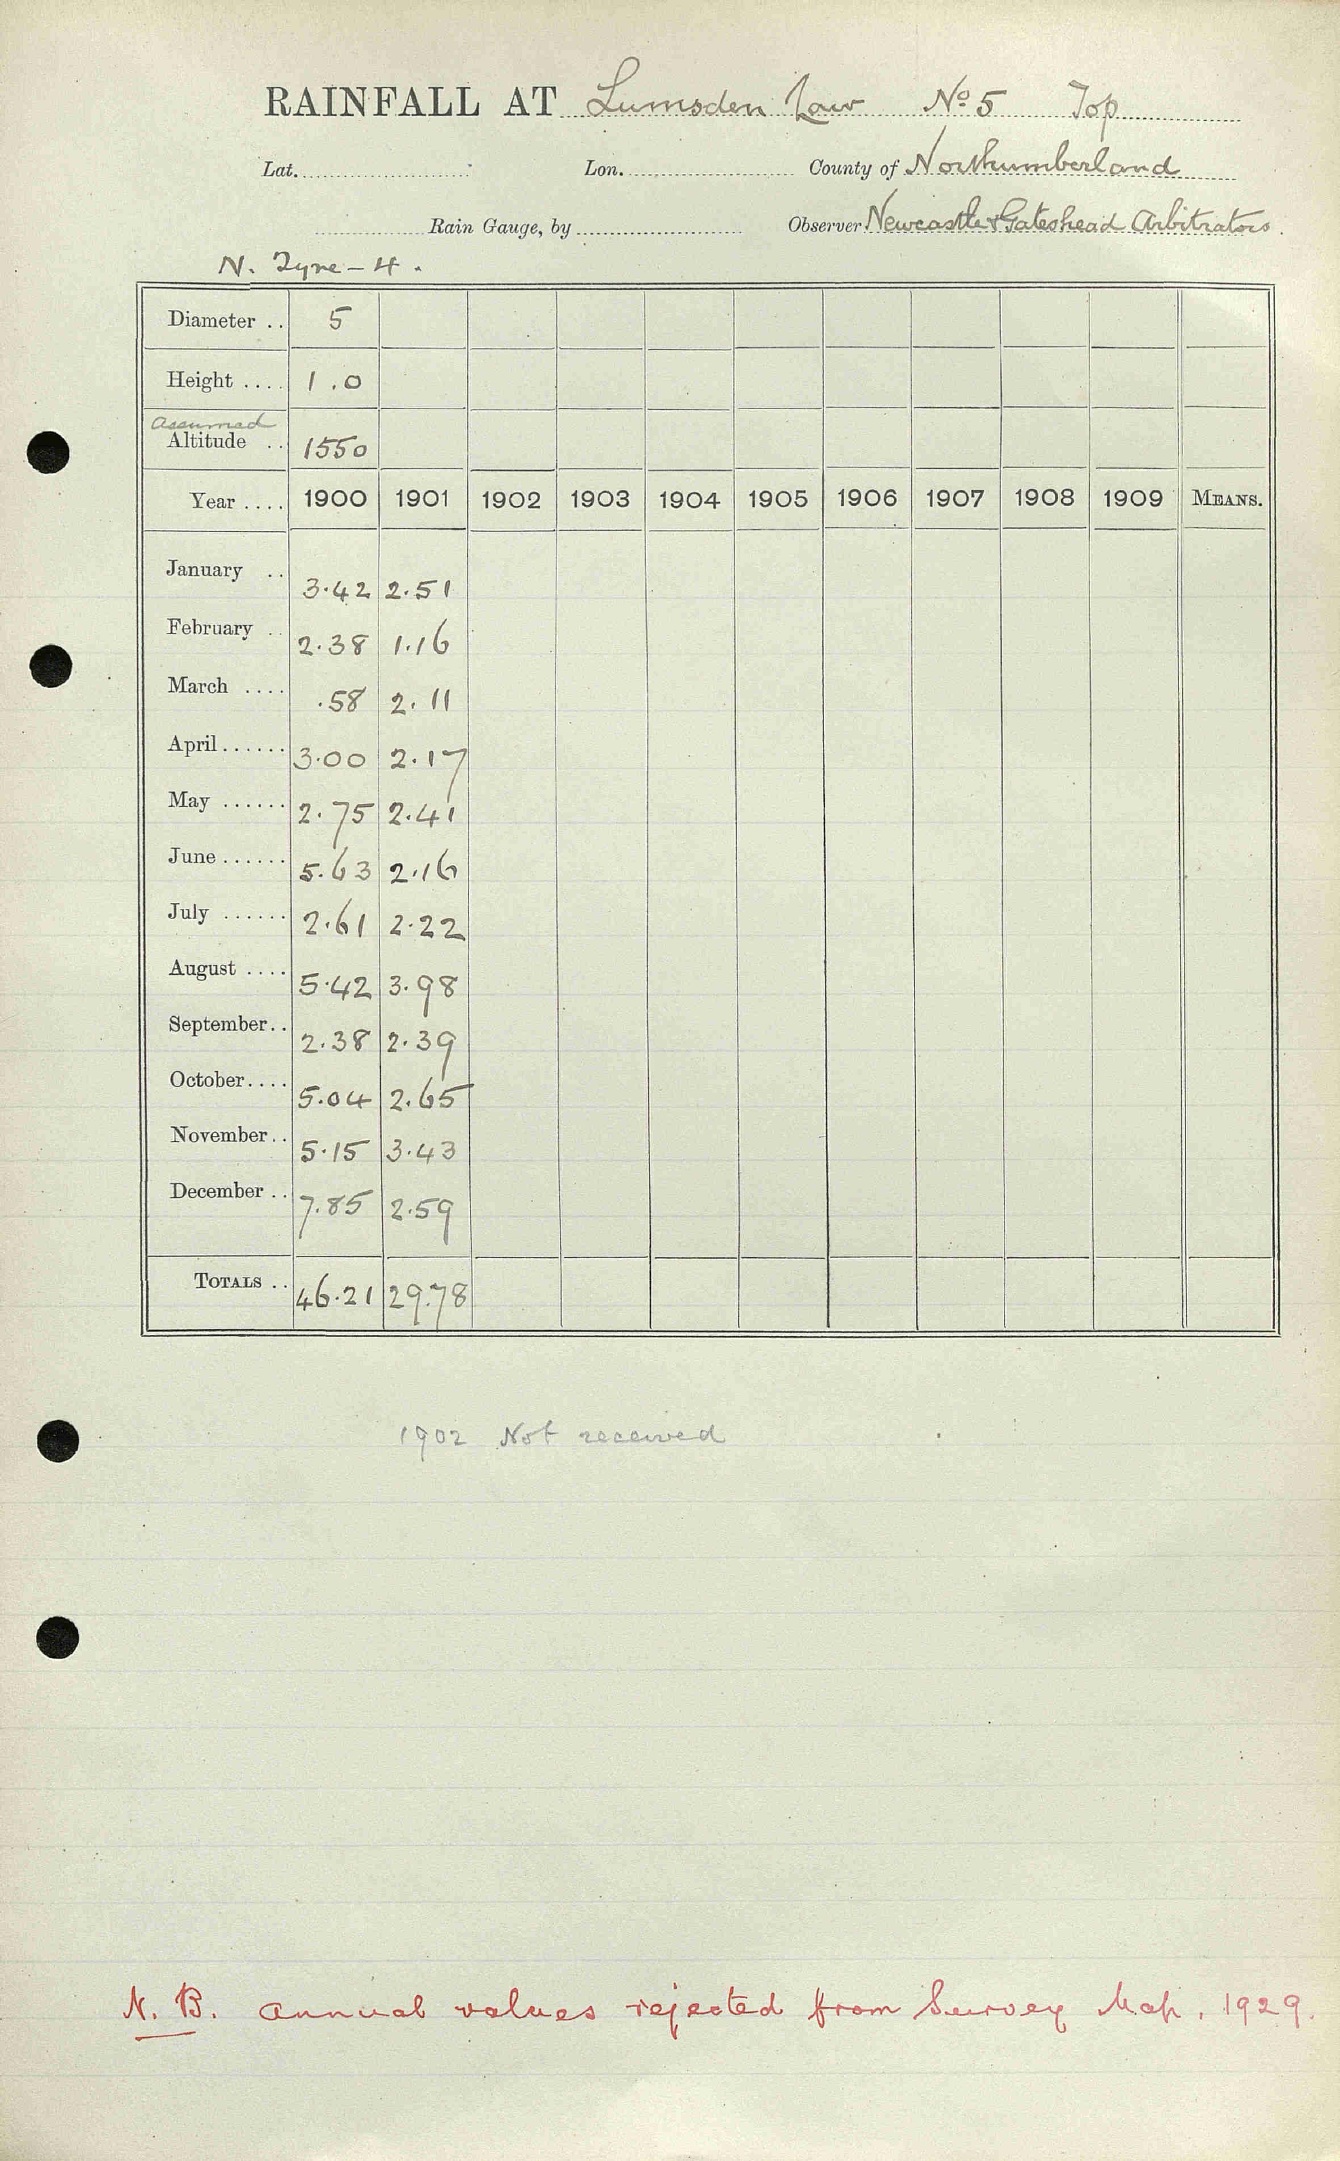 RAINFALL AT Lumsden Law No 5 Top
Lat. Lon. County of Northumberland
Rain Gauge, by Observer Newcastle & Gateshead Arbitrators
N. Tyne - 4.
Diameter .. 5
Height .... 1.0
assumed
Altitude .. 1550
Year .... 1900 1901 1902 1903 1904 1905 1906 1907 1908 1909 MEANS.
January .. 3.42 2.51
February .. 2.38 1.16
March .... .58 2.11
April ...... 3.00 2.17
May ...... 2.75 2.41
June ...... 5.63 2.16
July ...... 2.61 2.22
August .... 5.42 3.98
September .. 2.38 2.39
October .... 5.04 2.65
November .. 5.15 3.43
December .. 7.85 2.59
TOTALS .. 46.21 29.78
1902 Not received
N.B. annual values rejected from Survey Map, 1929.